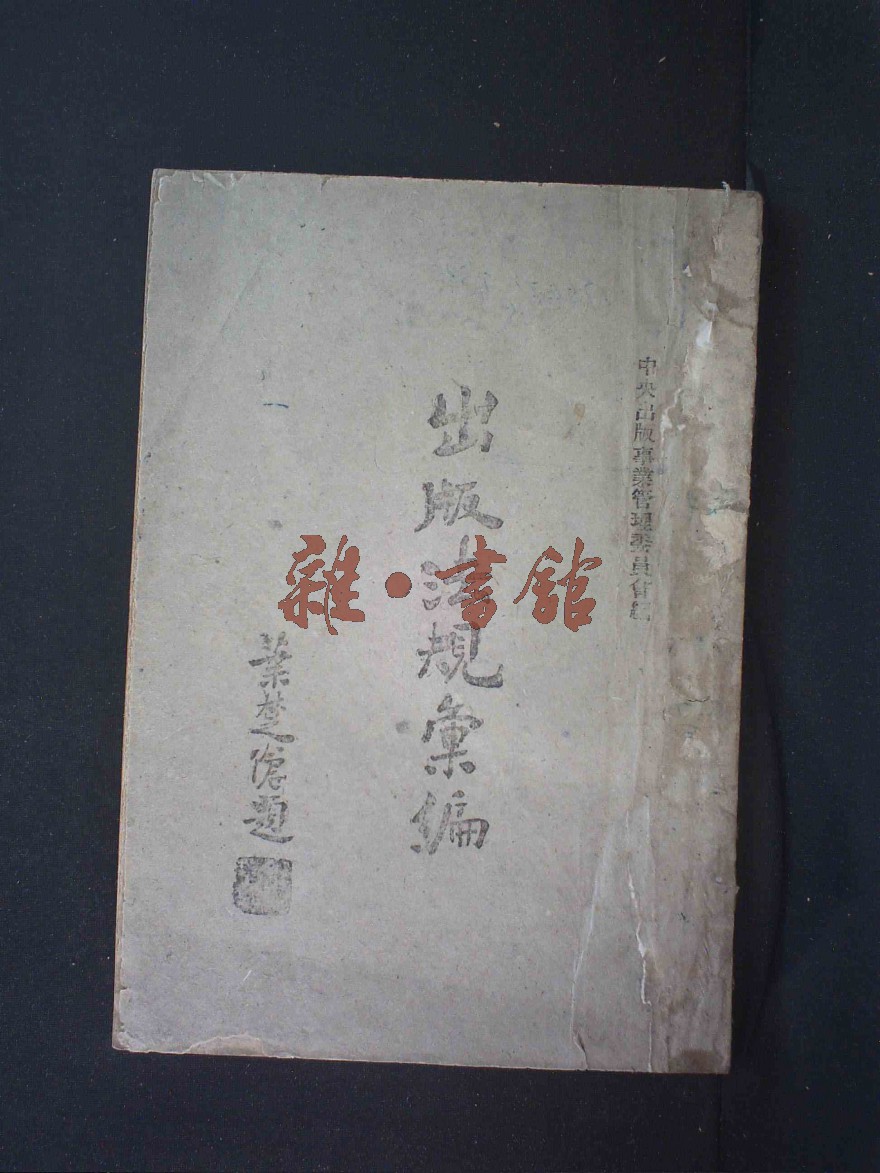 中央出版事業管理委員會編
出版法規彙編
葉楚傖題
雜·書館